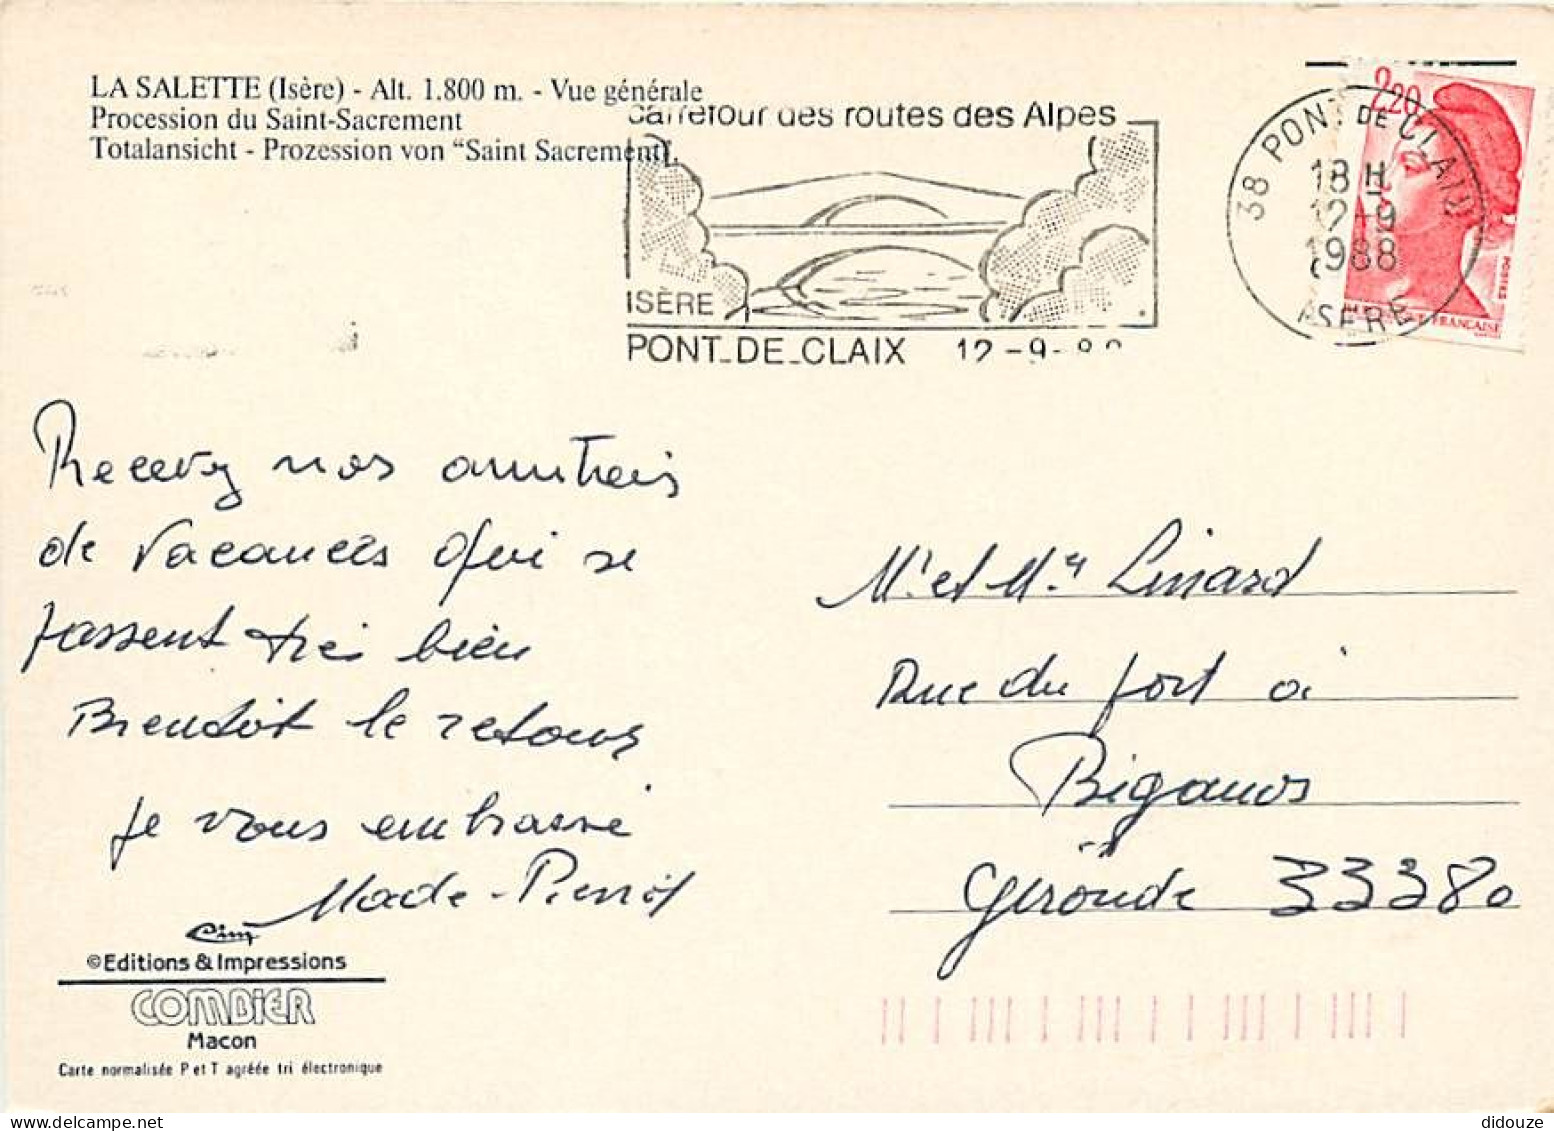 LA SALETTE (Isère) - Alt. 1.800 m. - Vue générale
Procession du Saint-Sacrement
Totalansicht - Prozession von “Saint Sacrement”.
Carrefour des routes des Alpes
ISÈRE
PONT_DE_CLAIX 12-9-88
38 PONT DE CLAIX
18 H
12-9
1988
ISERE
2,20
POSTES
FRANÇAISE
Recevez nos amitiés
de vacances qui se
passent très bien
Bientôt le retour
je vous embrasse
Made-Pierrot
Mr et Me Linard
Rue du port à
Biganos
Gironde 33380
Cim
©Editions & Impressions
COMBIER
Macon
Carte normalisée P et T agréée tri électronique
didouze